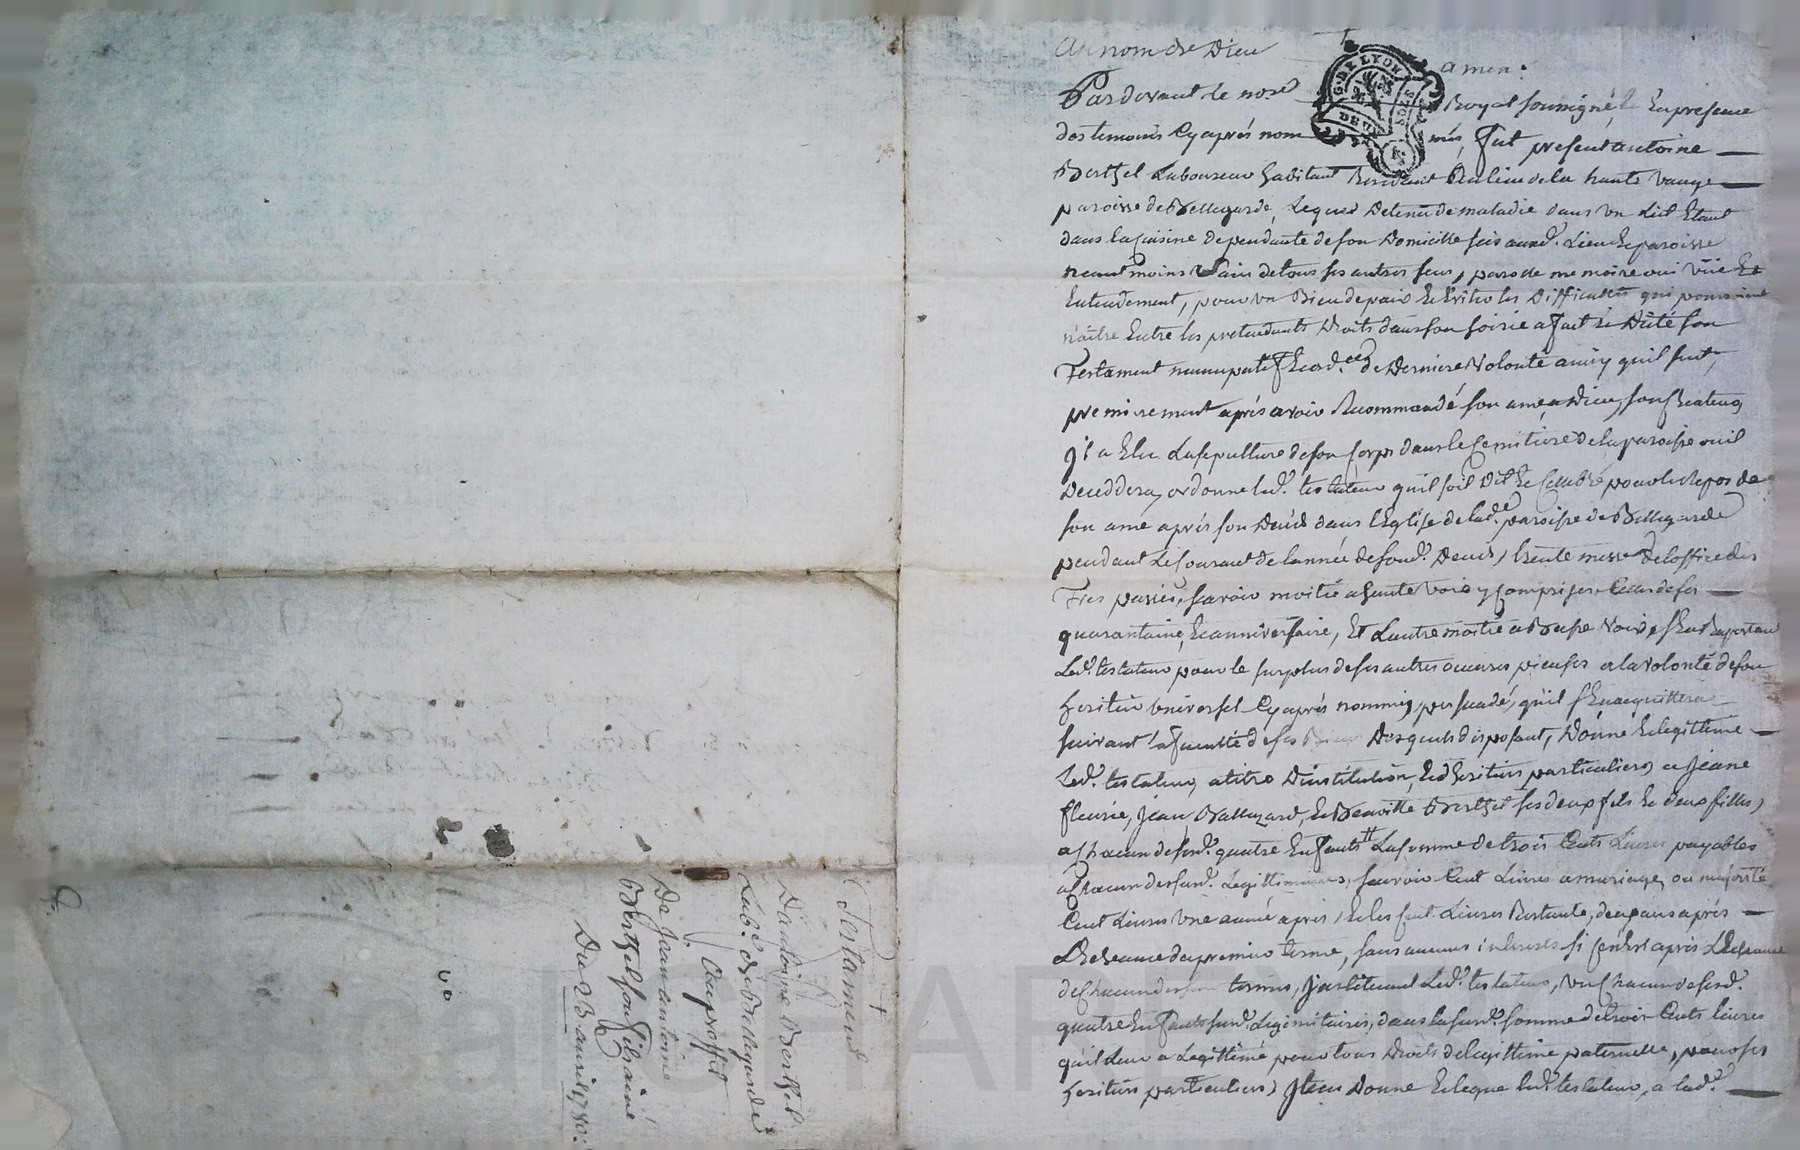 Au nom de Dieu amen:
G. DE LYON
DEUX SOLS
Pardevant le no.re Royal soussigné, & en presence
des temoins cy aprés nommés, fut present antoine
Berthel Laboureur habitant Residant au lieu de la haute vauge
paroisse de Bellegarde, Lequel Detenu de maladie dans un Lit Etant
dans la Cuisine dependante de son Domicille scis aud. Lieu & paroisse
neant moins sain de tous ses autres sens, parolle memoire oui vüe Et
Entendement, pour un Bien de paix & Eviter les Difficultés qui pourroient
naître Entre les pretendants Droits dans son hoirie a fait & Dicté son
Testament nuncupatif & ord.ce de Derniere Volonté ainsy quil suit,
premierement aprés avoir Recommandé son ame a Dieu, son Createur
Il a Elu La sepulture de son Corps dans le Cemitiere de la paroisse ou il
Deceddera, ordonne led. testateur quil soit Dit & Celebré pour le Repos de
son ame aprés son Decés dans l'Eglise de lad.e paroisse de Bellegarde
pendant Le Courant de l'année de sond. Decés, trente messes de loffice des
Tres passés, savoir moitié a haute voix y Comprises, Celles de ses
quarantaine, & anniversaire, Et L'autre moitié a Basse voix, s'En Raportant
Led. testateur pour le surplus de ses autres oeuvres pieuses a la volonté de son
heritier universel Cy aprés nommé, persuadé, qu'il s'En acquittera
suivant la faculté de ses Biens Desquels disposant, Donne & legittime
Led. testateur, a titre D'institution, & d'heritiers particuliers a Jeane
fleurie, Jean Baltazard, & Benoitte Berthel ses deux fils & deux filles,
a Chacun de sesd. quatre Enfants La somme de trois Cents Livres payables
a Chacun desd. Legittimaires, savoir Cent Livres a mariage, ou majorité
Cent Livres une année aprés, & les Cent Livres Restante, deux ans aprés
L'Echeance du premier terme, sans aucuns interets si Ce n'est aprés L'Echeance
de Chacun desd. termes, Instituant Led. testateur, un Chacun de sesd.
quatre Enfants susd. Legitimaires, dans la susd. somme de trois Cents livres
quil Leur a Legittimé pour tous Droits de legittime paternelle, pour ses
heritiers particuliers, Item Donne & legue led. testateur, a lad.e
Testament
D'antoine Berthel
Lab.r de Bellegarde
Au proffit
De Jean antoine
Berthel son fils ainé
Du 23 avril 1780: